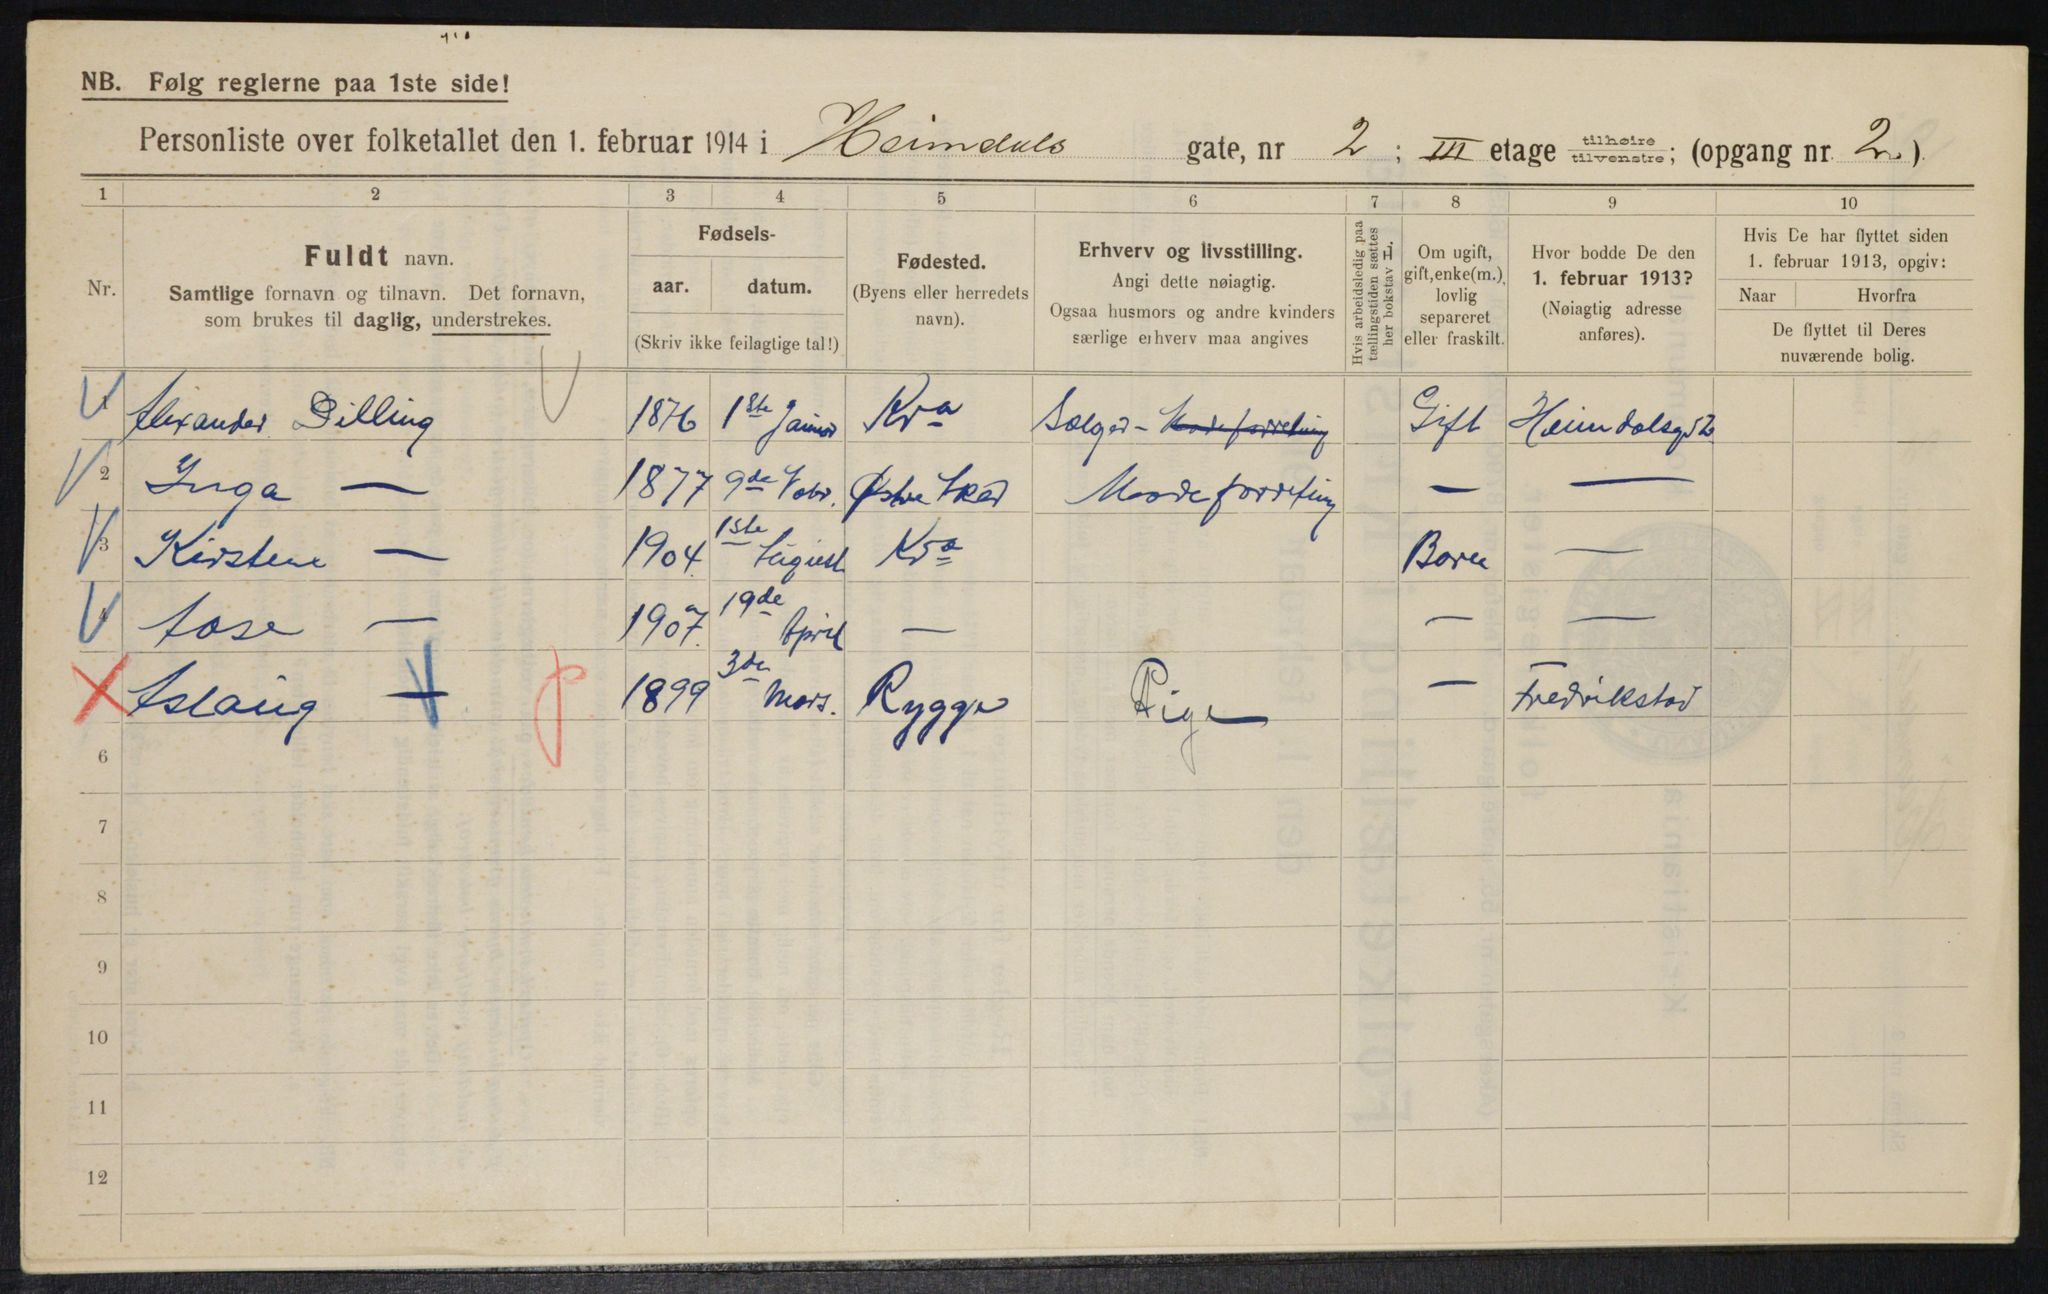 NB. Følg reglerne paa 1ste side!
Personliste over folketallet den 1. februar 1914 i Heimdals gate, nr 2; III etage tilhøire/tilvenstre; (opgang nr. 2)
1 2 3 4 5 6 7 8 9 10
Nr.
Fuldt navn.
Samtlige fornavn og tilnavn. Det fornavn,
som brukes til daglig, understrekes.
Fødsels-
aar. datum.
(Skriv ikke feilagtige tal!)
Fødested.
(Byens eller herredets
navn).
Erhverv og livsstilling.
Angi dette nøiagtig.
Ogsaa husmors og andre kvinders
særlige erhverv maa angives
Hvis arbeidsledig paa
tællingstiden sættes
her bokstav L.
Om ugift,
gift, enke(m.),
lovlig
separeret
eller fraskilt.
Hvor bodde De den
1. februar 1913?
(Nøiagtig adresse
anføres).
Hvis De har flyttet siden
1. februar 1913, opgiv:
Naar Hvorfra
De flyttet til Deres
nuværende bolig.
1 Alexander Dilling 1876 1ste Januar Kra Sælger - Modeforretning Gift Heimdalsg 2
2 Inga — 1877 9de Østre Modeforretning — —
3 Kirsten — 1904. 1ste August Kra Barn —
4 Aase — 1907. 19de April — — —
Aslaug — 1899 3de Mars. Rygge Pige — Fredrikstad
6
7
8
9
10
11
12